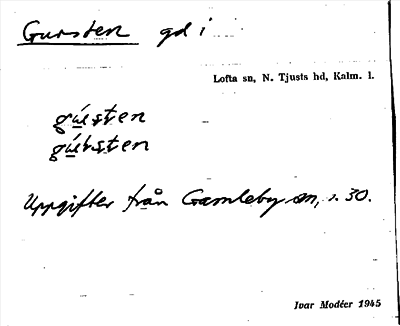 Gursten gd i
Lofta sn, N. Tjusts hd, Kalm. l.
gu̲sten
gu̲rsten
Uppgifter från Gamleby sn, s. 30.
Ivar Modéer 1945